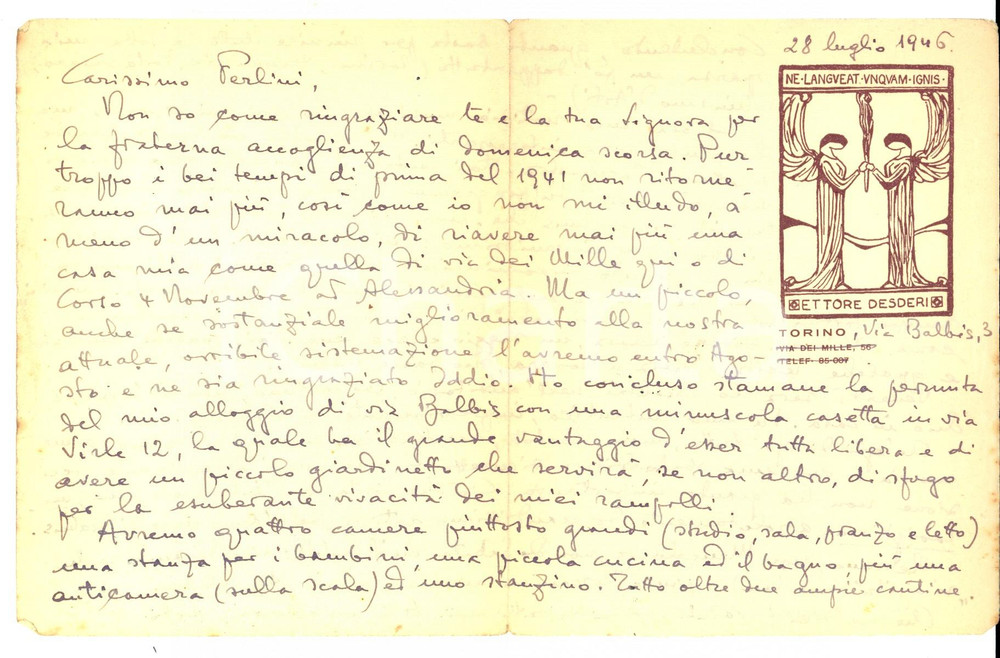 28 luglio 1946.
NE·LANGVEAT·VNQVAM·IGNIS·
ETTORE DESDERI
TORINO, Via Balbis, 3
VIA DEI MILLE, 56
TELEF. 85-007
Carissimo Perlini,
Non so come ringraziare te e la tua Signora per
la fraterna accoglienza di domenica scorsa. Pur
troppo i bei tempi di prima del 1941 non ritorne-
ranno mai più, così come io non mi illudo, a
meno d'un miracolo, di riavere mai più una
casa mia come quella di via dei Mille qui o di
Corso 4 Novembre ad Alessandria. Ma un piccolo,
anche se sostanziale miglioramento alla nostra
attuale, orribile sistemazione l'avremo entro Ago-
sto e ne sia ringraziato Iddio. Ho concluso stamane la permuta
del mio alloggio di via Balbis con una minuscola casetta in via
Virle 12, la quale ha il grande vantaggio d'esser tutta libera e di
avere un piccolo giardinetto che servirà, se non altro, di sfogo
per la esuberante vivacità dei miei rampolli.
Avremo quattro camere piuttosto grandi (studio, sala, pranzo e letto)
una stanza per i bambini, una piccola cucina ed il bagno, più una
anticamera (sulla scala) ed uno stanzino. Tutto oltre due ampie cantine.